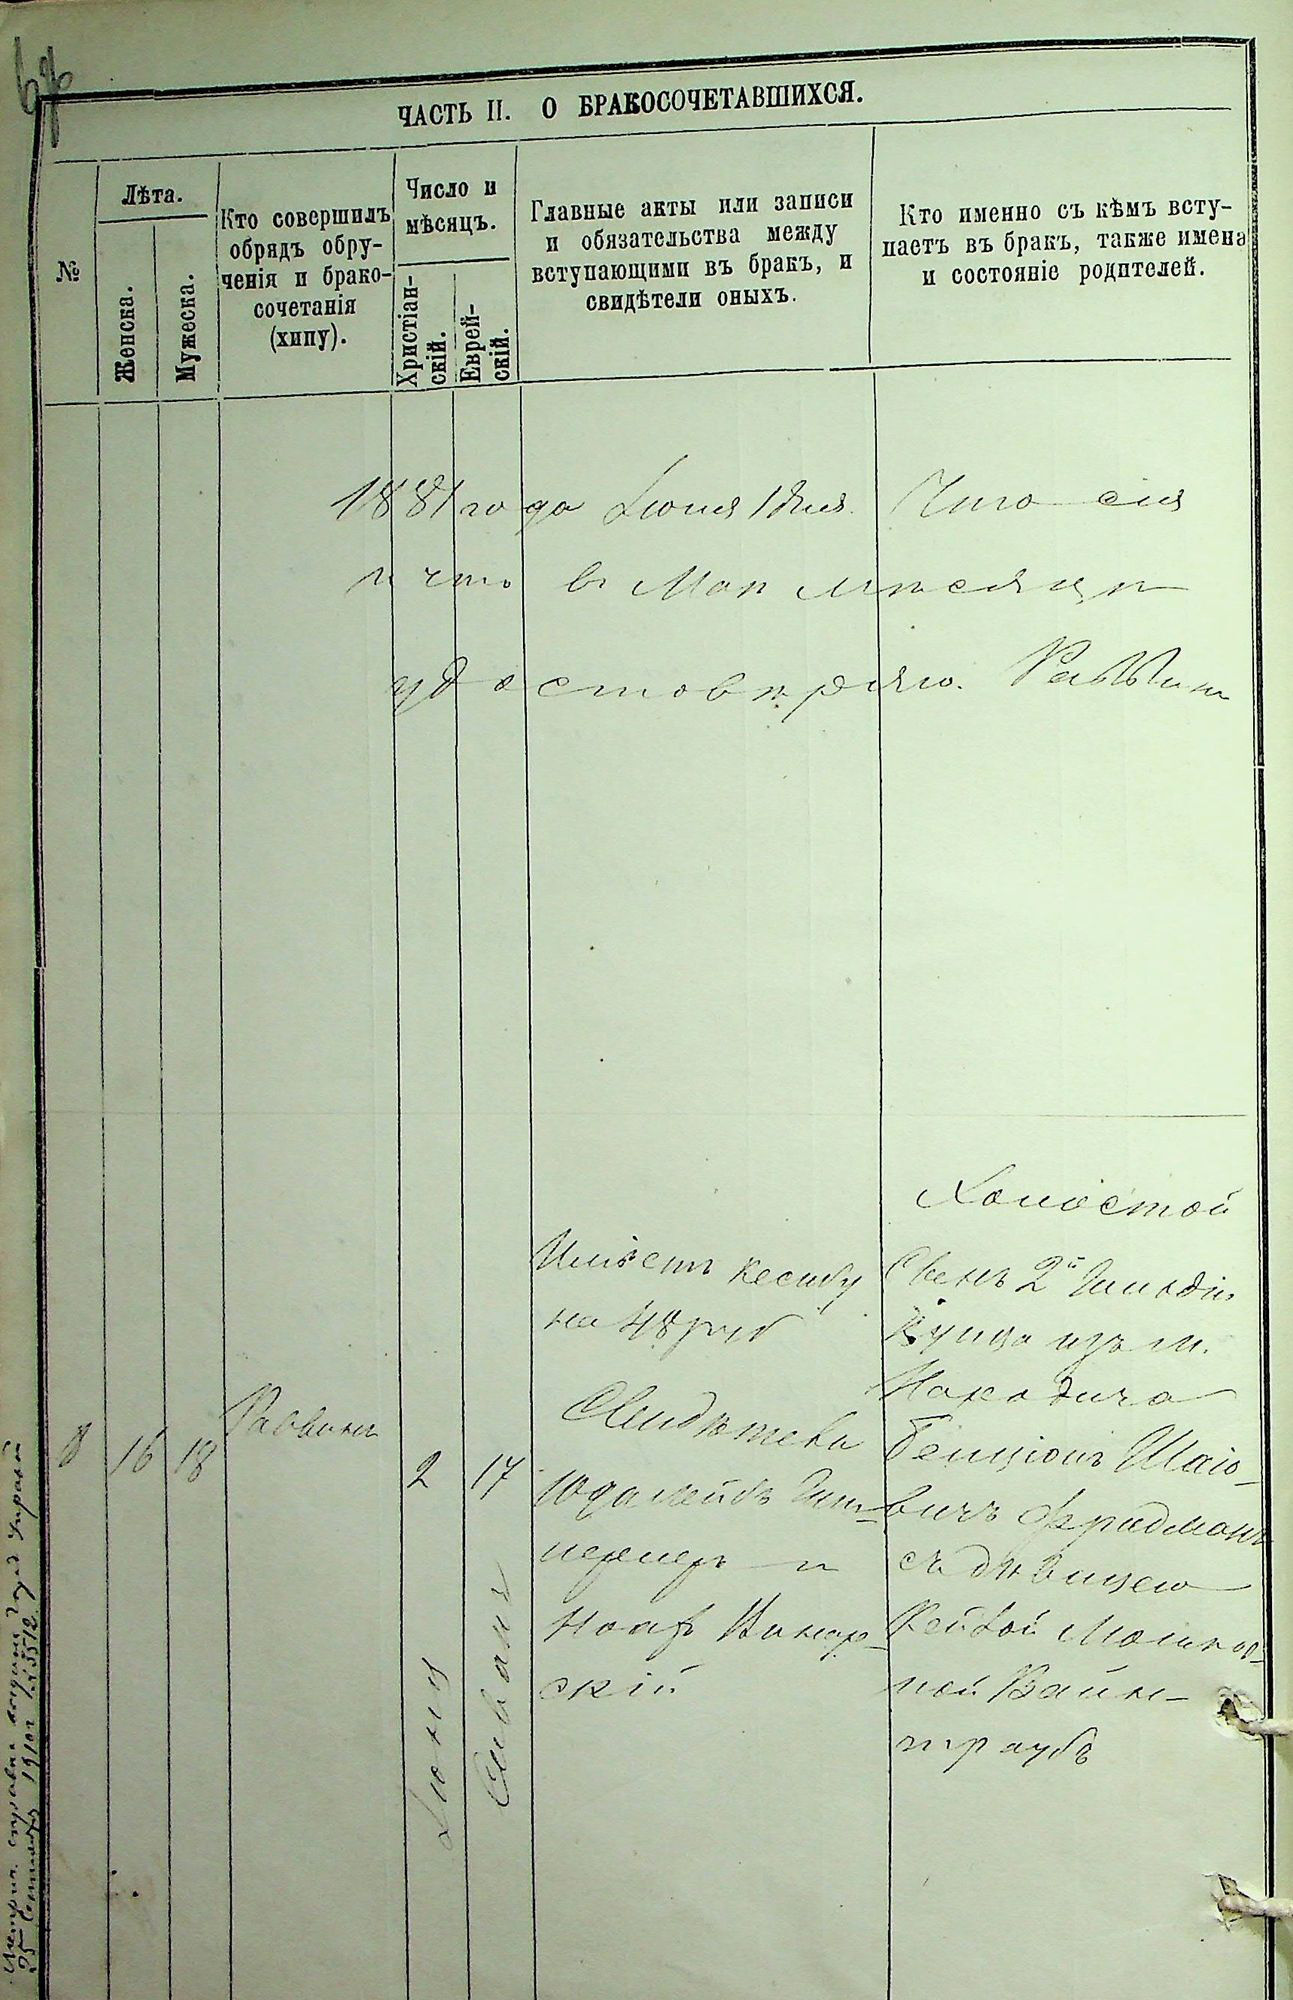 ЧАСТЬ II. О БРАКОСОЧЕТАВШИХСЯ.
№
Лѣта.
Женска.
Мужеска.
Кто совершилъ
обрядъ обру-
ченія и брако-
сочетанія
(хипу).
Число и
мѣсяцъ.
Христіан-
скій.
Еврей-
скій.
Главные акты или записи
и обязательства между
вступающими въ бракъ, и
свидѣтели оныхъ.
Кто именно съ кѣмъ всту-
паетъ въ бракъ, также имена
и состояніе родителей.
1881 года Іюня 1 дня. Что сія
что въ Маѣ мѣсяцѣ
удостовѣряю. Раввинъ
8
16
18
Раввинъ
2
Іюня
17
Сивана
Имѣетъ кесибу
на 48 руб
Свидѣтели
Юдалейбъ
и
скій
Холостой
2й Гильдіи
Купца изъ м.
Бенціонъ Шаіо-
вичъ Фридманъ
съ дѣвицею
Вайн-
траубъ